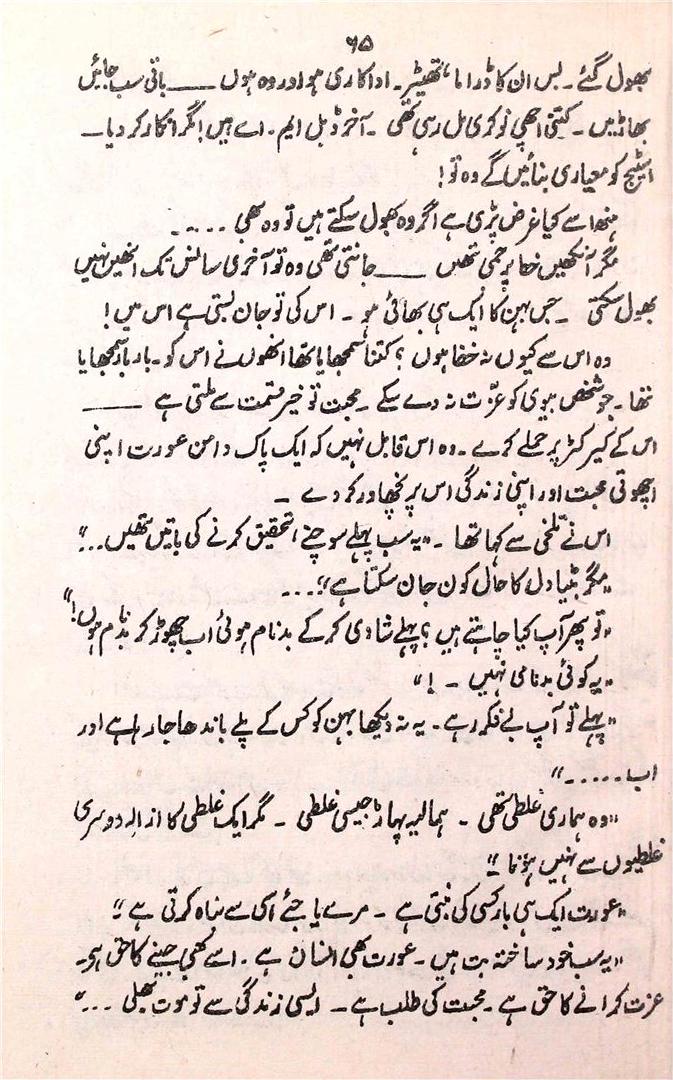 ۶۵
بھول گئے۔ بس ان کا ڈراما، تھیٹر۔ اداکاری ہو اور وہ ہوں ـــــ باقی سب جائیں
بھاڑ میں۔ کیتی اچھی نوکری مل رہی تھی۔ آخر ڈبل ایم۔ اے ہیں! مگر انکار کر دیا۔
اسٹیج کو معیاری بنائیں گے وہ تو!
ہنھ اسے کیا غرض پڑی ہے اگر وہ بھول سکتے ہیں تو وہ بھی ۔۔۔۔۔
مگر آنکھیں خط پر جمی تھیں ـــــ جانتی تھی وہ تو آخری سانس تک انھیں نہیں
بھول سکتی ۔ جس بہن کا ایک ہی بھائی ہو ۔ اس کی تو جان بستی ہے اس میں!
وہ اس سے کیوں نہ خفا ہوں؟ کتنا سمجھایا تھا انھوں نے اس کو۔ بار بار سمجھایا
تھا۔ جو شخص بیوی کو عزّت نہ دے سکے۔ محبت تو خیر قسمت سے ملتی ہے ـــــ
اس کے کیرکٹر پر حملے کرے۔ وہ اس قابل نہیں کہ ایک پاک دامن عورت اپنی
اچھوتی محبت اور اپنی زندگی اس پر نچھاور کر دے ۔
اس نے تلخی سے کہا تھا ۔ "یہ سب پہلے سوچنے، تحقیق کرنے کی باتیں تھیں۔۔۔"
"مگر بٹیا دل کا حال کون جان سکتا ہے"۔۔۔
"تو پھر آپ کیا چاہتے ہیں؟ پہلے شادی کر کے بدنام ہوئی اب چھوڑ کر بدنام ہوں!"
"یہ کوئی بدنامی نہیں ۔ !"
"پہلے تو آپ بے فکر رہے۔ یہ نہ دیکھا بہن کو کس کے پلے باندھا جا رہا ہے اور
اب ۔۔۔۔۔"
"وہ ہماری غلطی تھی ۔ ہمالیہ پہاڑ جیسی غلطی ۔ مگر ایک غلطی کا ازالہ دوسری
غلطیوں سے نہیں ہوتا"
"عورت ایک ہی بار کسی کی بنتی ہے ۔ مرے یا جئے اسی سے نباہ کرتی ہے"
"یہ سب خود ساختہ بت ہیں۔ عورت بھی انسان ہے ۔ اسے بھی جینے کا حق ہے۔
عزت کرانے کا حق ہے ۔ محبت کی طلب ہے۔ ایسی زندگی سے تو موت بھلی ۔۔۔"